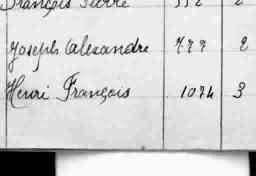 François Pierre 332 2
Joseph Alexandre 777 2
Henri François 1074 3